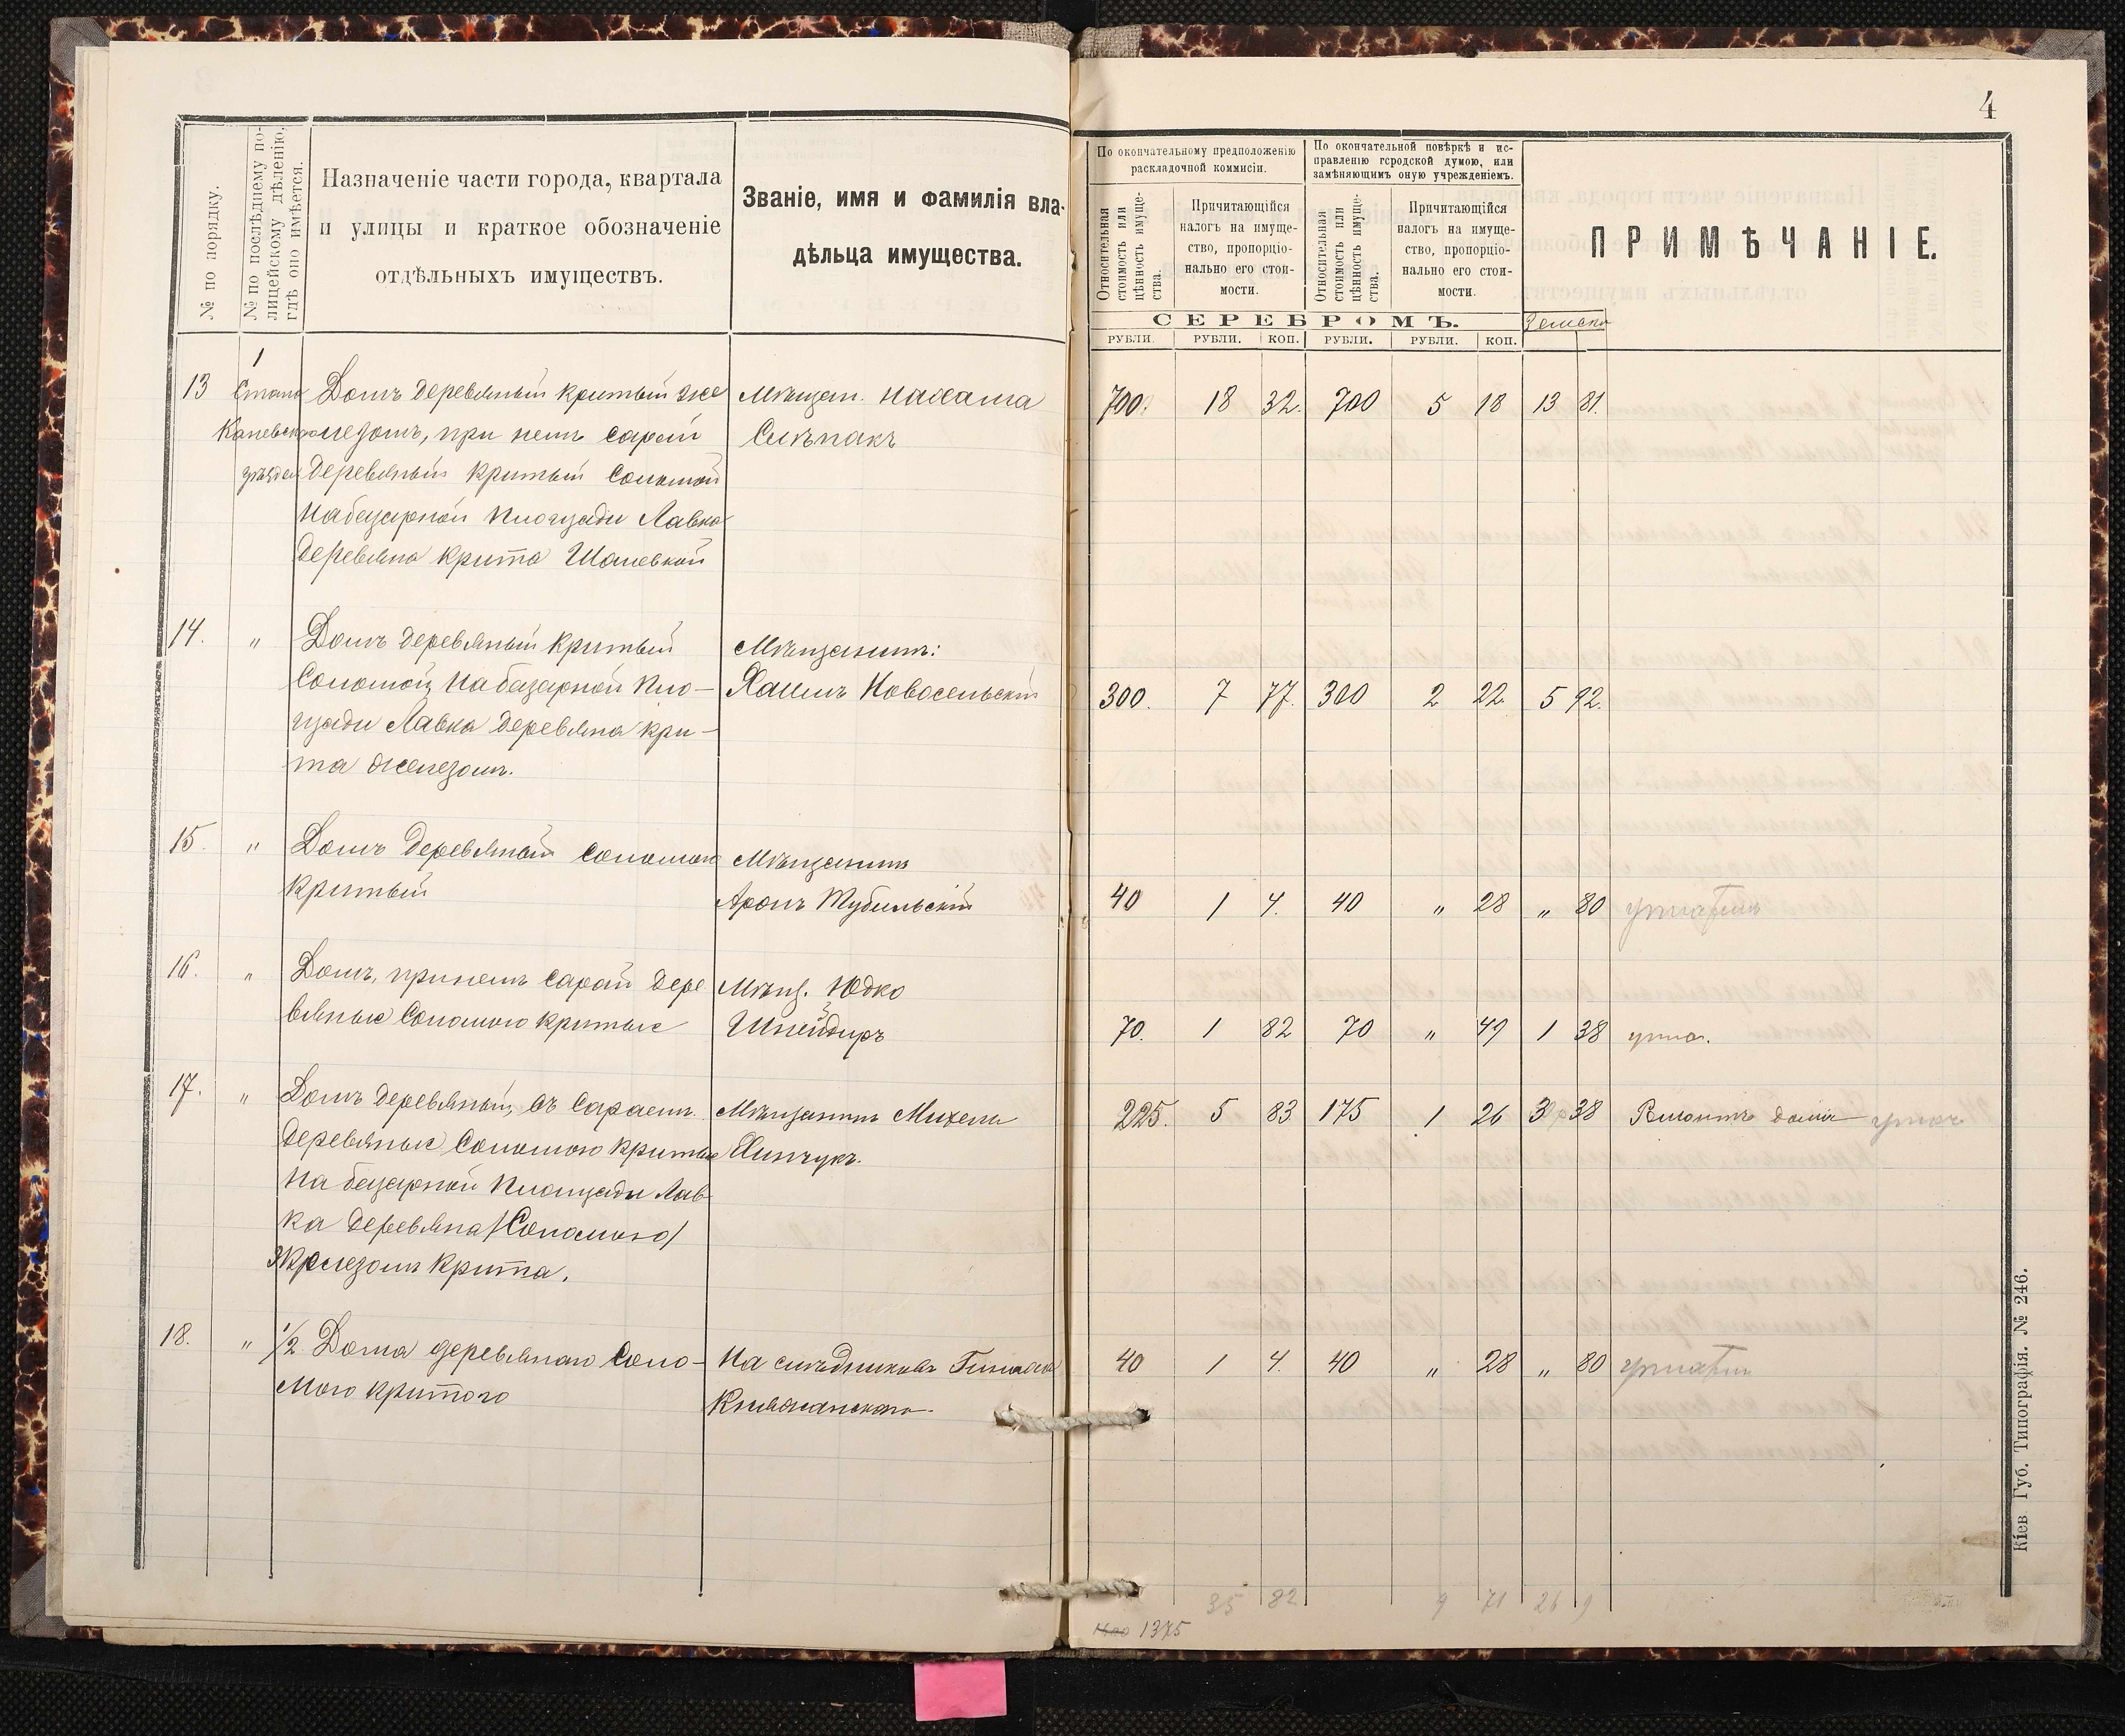 4
№ по порядку.
№ по послѣднему по-
лицейскому дѣленію,
гдѣ оно имѣется.
Назначеніе части города, квартала
и улицы и краткое обозначеніе
отдѣльныхъ имуществъ.
Званіе, имя и фамилія вла-
дѣльца имущества.
По окончательному предположенію
раскладочной коммисіи.
По окончательной повѣркѣ и ис-
правленію городской думою, или
замѣняющимъ оную учрежденіемъ.
Относительная
стоимость или
цѣнность имуще-
ства.
Причитающійся
налогъ на имуще-
ство, пропорціо-
нально его стои-
мости.
Относительная
стоимость или
цѣнность имуще-
ства.
Причитающійся
налогъ на имуще-
ство, пропорціо-
нально его стои-
мости.
ПРИМѢЧАНІЕ.
СЕРЕБРОМЪ.
РУБЛИ. РУБЛИ. КОП. РУБЛИ. РУБЛИ. КОП.
1
13 Домъ деревяный критый же Мѣщан. 700. 18 32. 700 5 18 13 81.
лезомъ, при немъ сарай
деревяный критый соломой
на базарной площади Лавка
деревяна крита Шалевкой
14. " Домъ деревяный критый Мѣщанинъ:
Соломой, на базарной пло- Хаимъ Новосельскій 300. 7 77. 300 2 22 5 92.
щади Лавка деревяна кри-
та железом.
15. " Домъ деревяный соломою Мѣщанинъ
критый Аронъ Тубильскій 40 1 4. 40 " 28 " 80
16. " Домъ, при немъ сарай дере Мѣщ. Юдко
вяные Соломою критые Шнейдиръ 70. 1 82 70 " 49 1 38
17. " Домъ деревяный, съ сараемъ Мѣщанинъ Михель 225. 5 83 175 1 26 3 38
деревяные Соломою критые
на базарной площади Лав
ка деревяна /Соломою/
железомъ крита.
18. " 1/2 Дома деревянаго Соло- На слѣдниковъ 40 1 4. 40 " 28 " 80
мою критого
35 82 9 71 26 9
1375
Кіев Губ. Типографія. № 246.